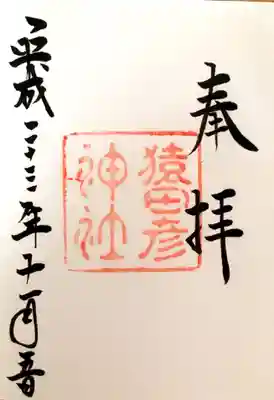 奉拝
猿田彦
神社
平成二十三年十一月五日